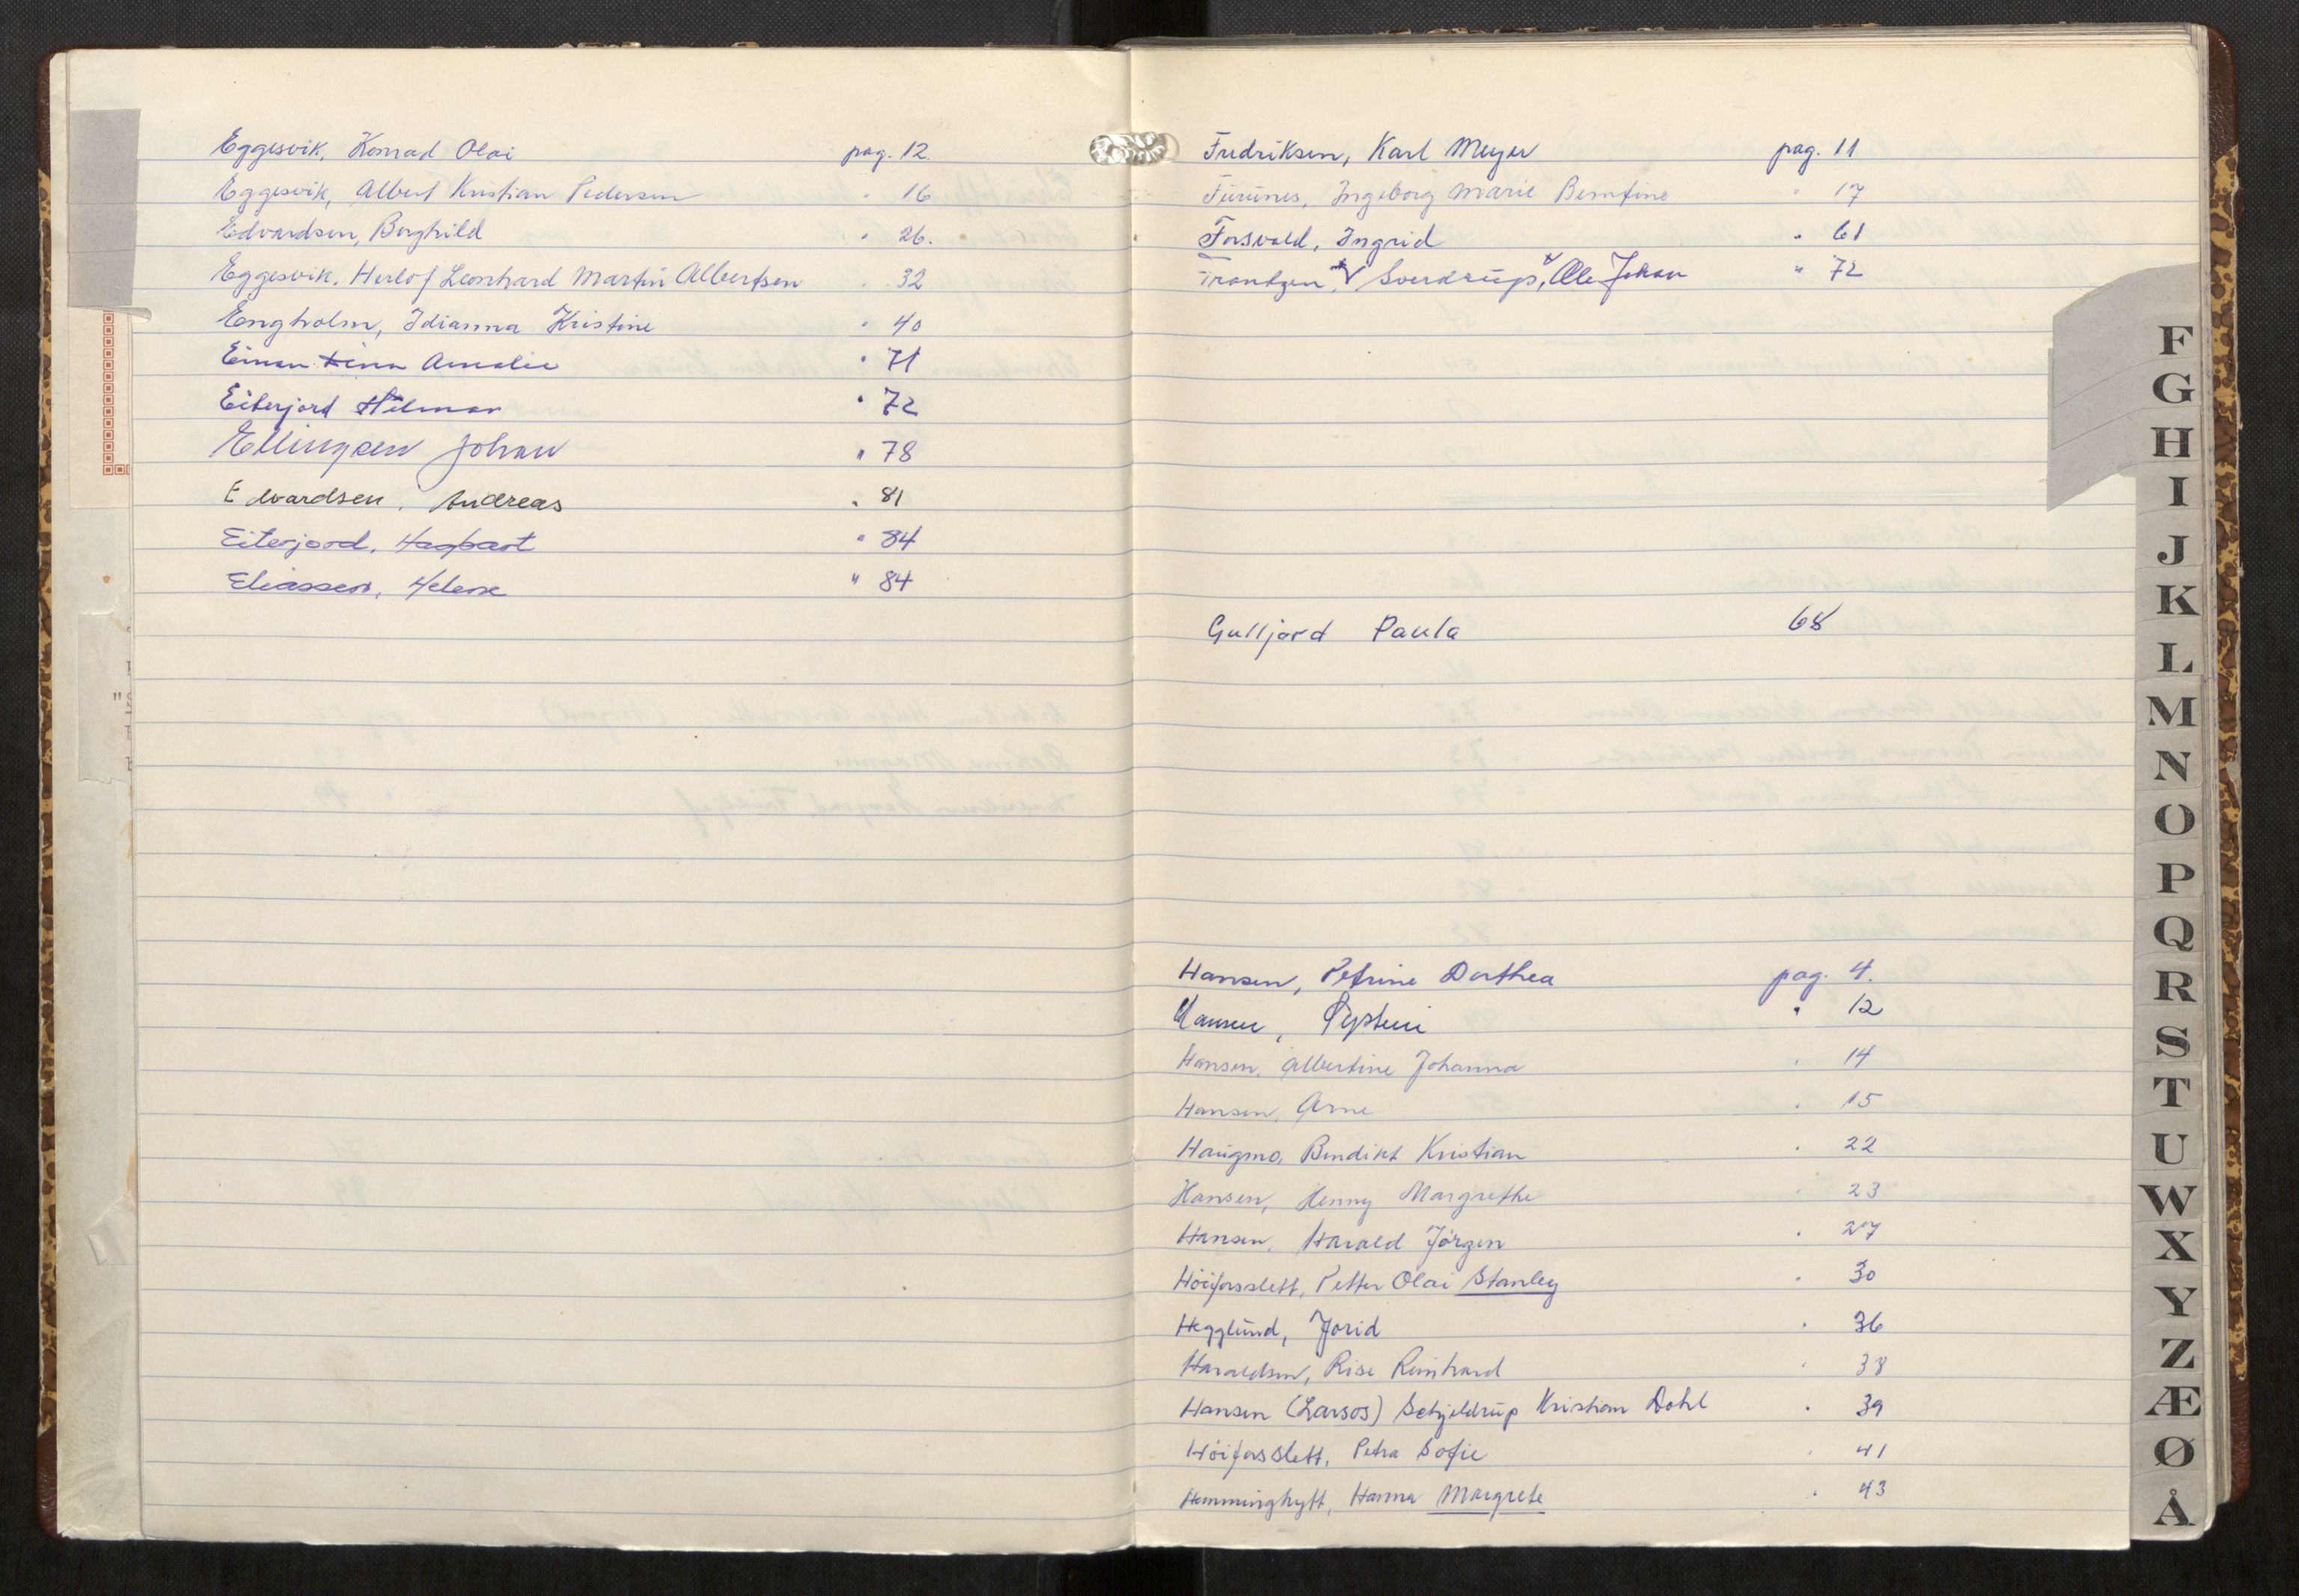 Eggesvik, Konrad Olai pag. 12.
Eggesvik, Albert Kristian Pedersen " 16
Edvardsen, Borghild " 26.
Eggesvik, Herlof Leonhard Martin Albertsen " 32
Engholm, Idianna Kristine " 40
Einan Lina Amalie " 71
Eiterjord Hilmar " 72
Ellingsen Johan " 78
Edvardsen, Andreas " 81
Eiterjord, Hagbart " 84
Eliassen, Helene " 84
Fredriksen, Karl Meyer pag. 11
Furunes, Ingeborg Marie Berntine " 17
Forsvold, Ingrid " 61
Frantzen, Sverdrup, Ole Johan " 72
Gulljord Paula 68
Hansen, Petrine Dorthea pag. 4.
Hansen, Øystein " 12
Hansen, Albertine Johanna " 14
Hansen, Arne " 15
Haugmo, Bendikt Kristian " 22
Hansen, Henny Margrethe " 23
Hansen, Harald Jörgen " 27
Höiforsslett, Petter Olai Stanley " 30
Hegglund, Jorid " 36
Haraldsen, Rise Reinhard " 38
Hansen (Larsos) Schjeldrup Kristian Dahl " 39
Höiforsslett, Petra Sofie " 41
Hemminghytt, Hanna Margrete " 43
F
G
H
I
J
K
L
M
N
O
P
Q
R
S
T
U
W
X
Y
Z
Æ
Ø
Å